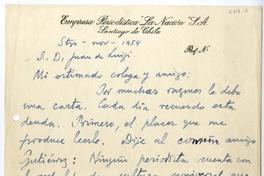 Empresa Periodística "La Nación" S.A.
Santiago de Chile
Ref. N.
Stgo - nov - 1954
S. D. Juan de Luigi.
Mi estimado colega y amigo:
Por muchas razones le debo
una carta. Cada día recuerdo esta
deuda. Primero, el placer que me
produce leerlo. Dije al común amigo
Gutiérrez: Ningún periodista cuenta con